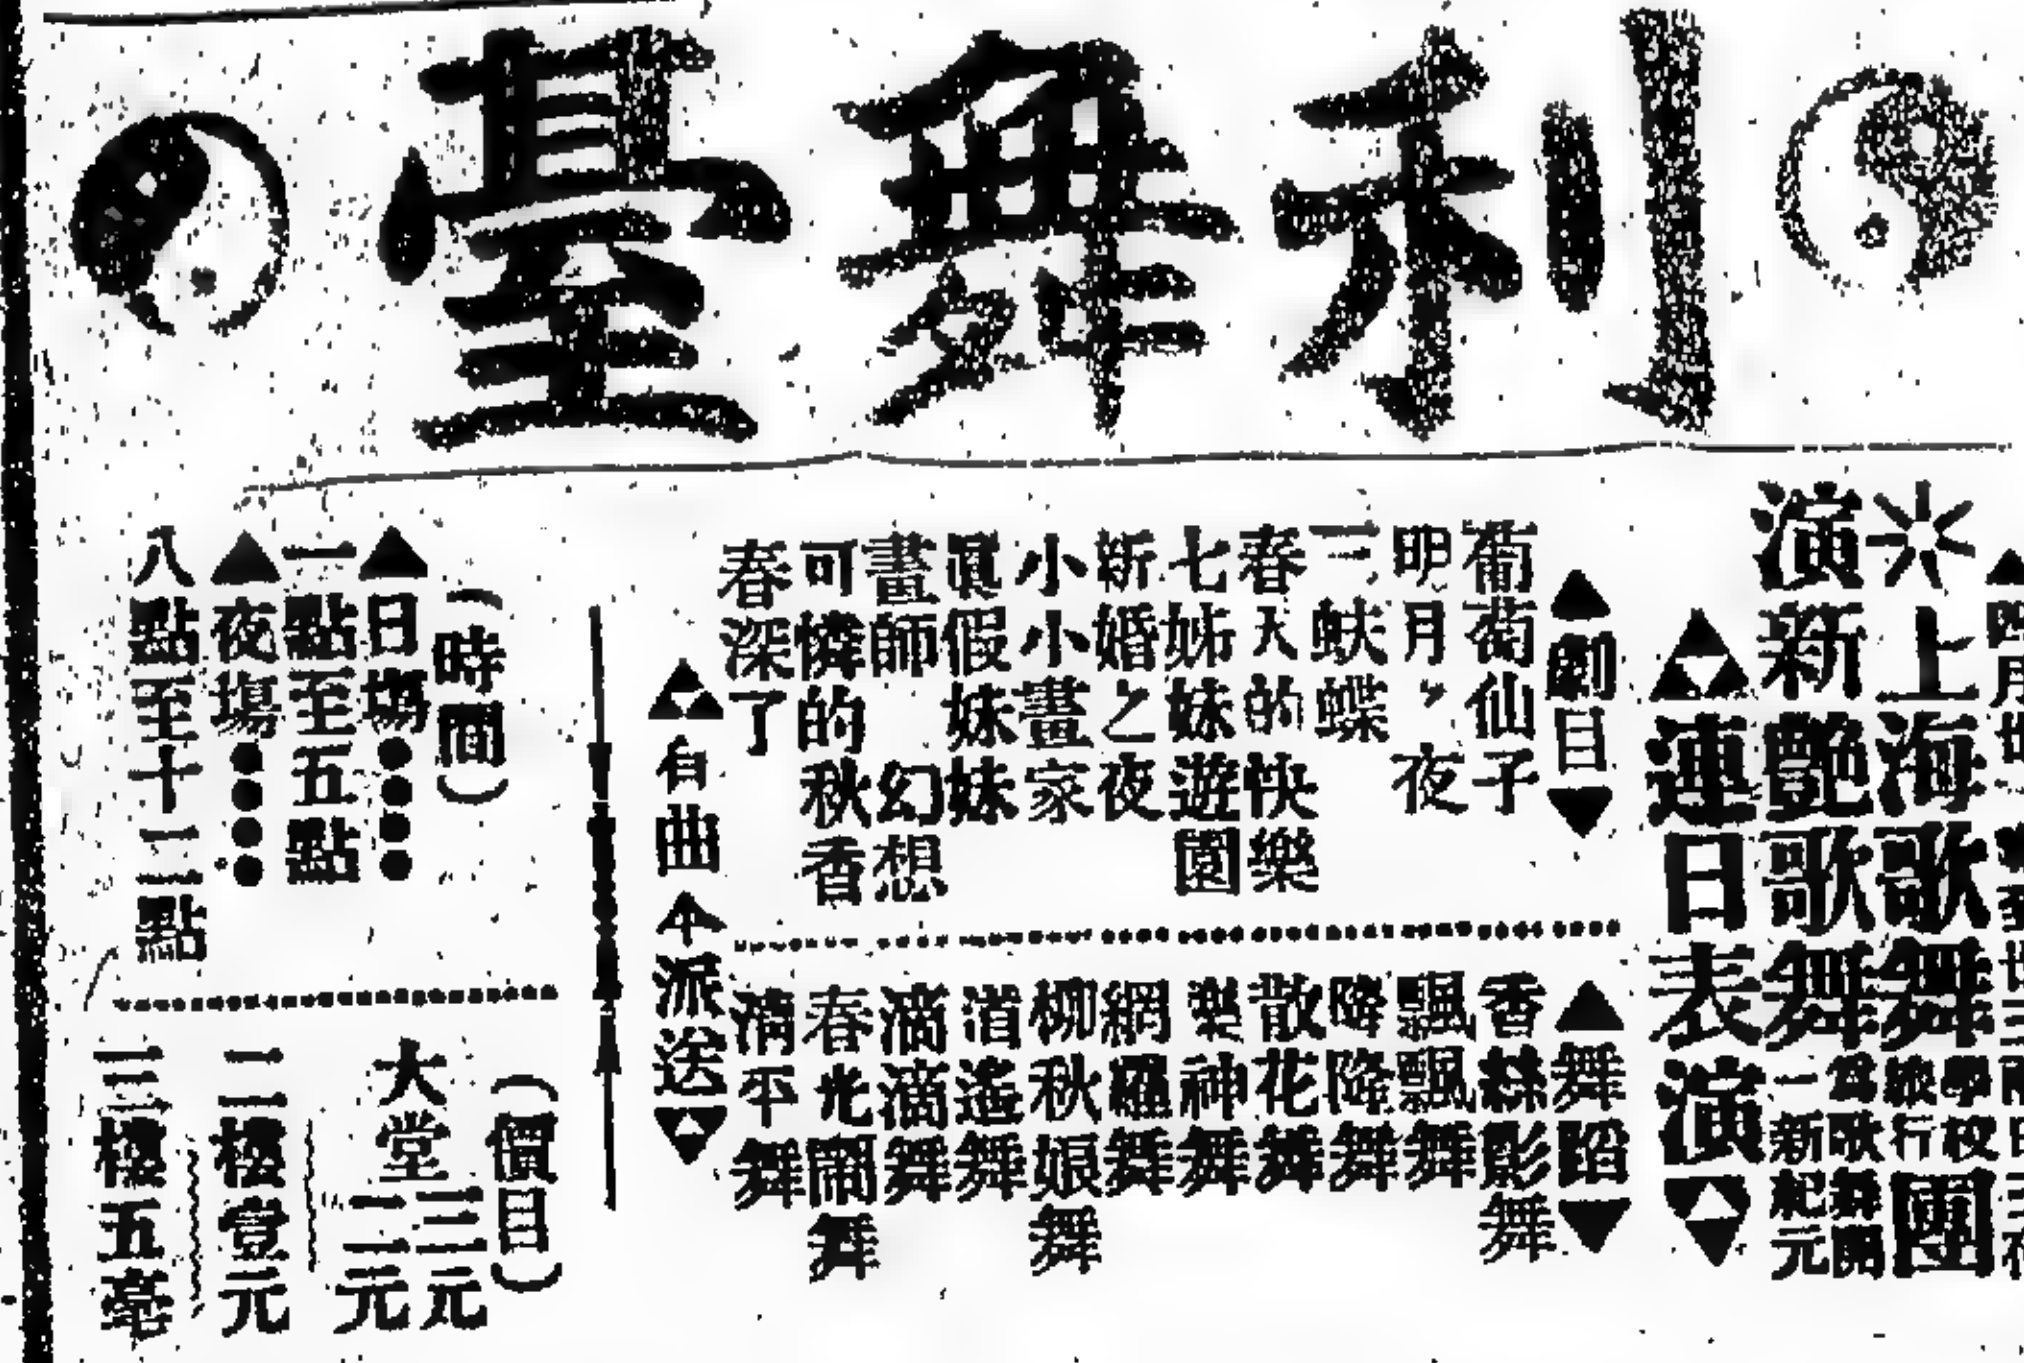 利舞臺
上海歌舞團
學校
旅行
為歌舞開
一新紀元
演新艷歌舞
連日表演
劇目
葡萄仙子
明月之夜
三蚨蝶
春天的快樂
七姊妹遊園
新婚之夜
小小畫家
眞假妹妹
畫師幻想
可憐的秋香
春深了
舞蹈
香絲影舞
飄飄舞
降降舞
散花舞
樂神舞
網羅舞
柳秋娘舞
逍遙舞
滴滴舞
春光閙舞
淸平舞
有曲本派送
(時間)
日塲
一點至五點
夜塲
八點至十二點
(價目)
大堂三元二元
二樓壹元
三樓五毫